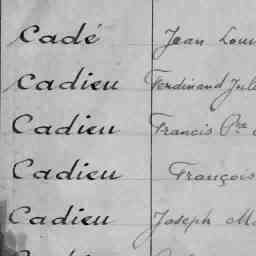 Cadé Jean Loui
Cadieu Ferdinand Jule
Cadieu Francis
Cadieu François
Cadieu Joseph Ma